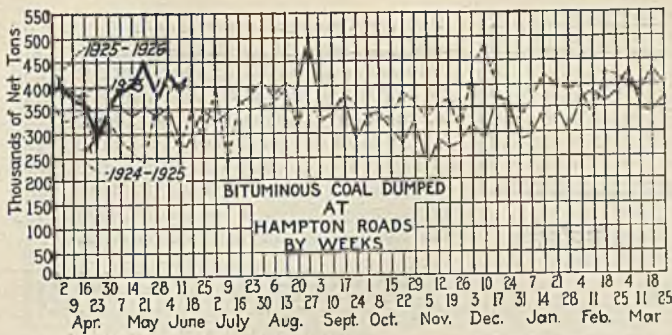 Thousands of Net Tons
550
500
450
400
350
300
250
200
150
100
50
0
1925-1926
1924-1925
BITUMINOUS COAL DUMPED
AT
HAMPTON ROADS
BY WEEKS
2 16 30 14 28 11 25 9 23 6 20 3 17 1 15 29 12 26 10 24 7 21 4 18 4 18
9 23 7 21 4 18 2 16 30 13 27 10 24 8 22 5 19 3 17 31 14 28 11 25 11 25
Apr. May June July Aug. Sept. Oct. Nov. Dec. Jan. Feb. Mar